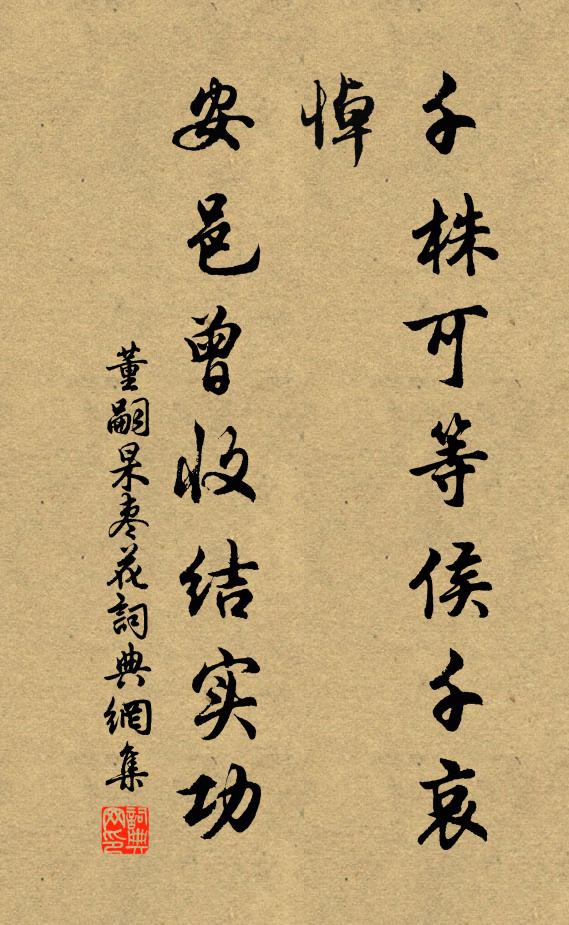 千株可等侯千哀
悼
安邑曾收结实功
董嗣杲枣花詞典網集
詞典網印